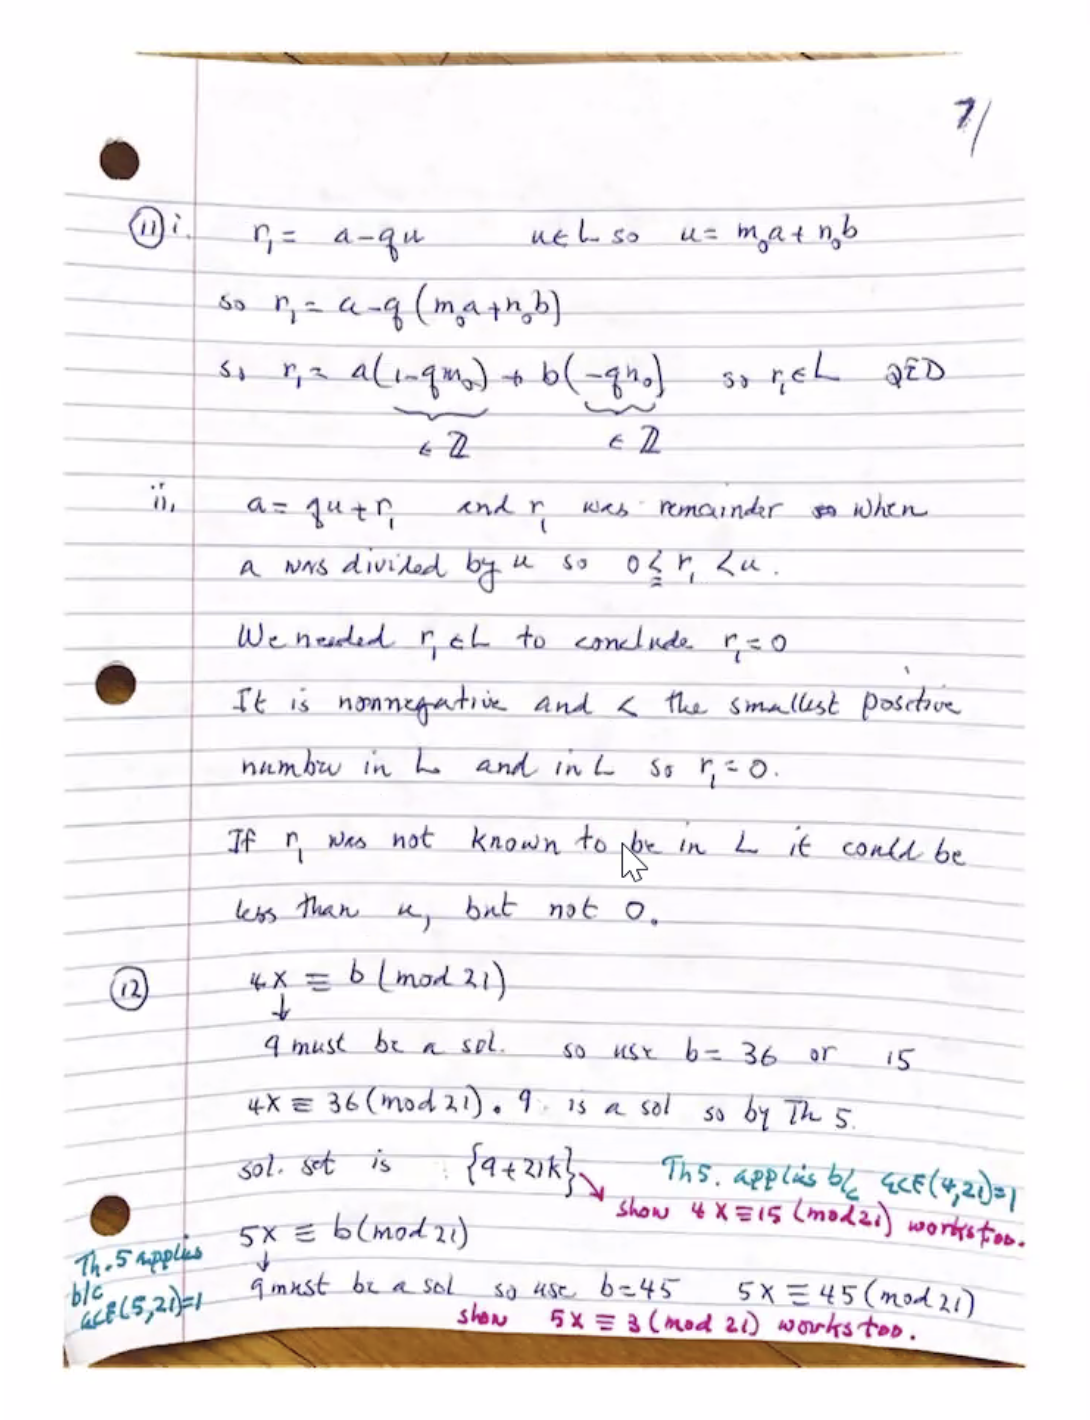 7/
⑪ i. r₁ = a-qu u∈L so u = m₀a + n₀b
so r₁ = a-q(m₀a+n₀b)
so r₁ = a(1-qm₀) + b(-qn₀) so r₁∈L QED
∈ ℤ ∈ ℤ
ii. a = qu+r₁ and r₁ was remainder when
a was divided by u so 0 ≤ r₁ < u.
We needed r₁∈L to conclude r₁=0
It is nonnegative and < the smallest positive
number in L and in L so r₁=0.
If r₁ was not known to be in L it could be
less than u, but not 0.
⑫ 4X ≡ b (mod 21)
↓
9 must be a sol. so use b = 36 or 15
4X ≡ 36 (mod 21). 9 is a sol so by Th 5.
sol. set is {9+21k} Th5. applies b/c GCF(4,21)=1
show 4X≡15 (mod 21) works too.
5X ≡ b (mod 21)
Th. 5 applies
b/c
GCF(5,21)=1
↓
9 must be a sol so use b=45 5X ≡ 45 (mod 21)
show 5X ≡ 3 (mod 21) works too.